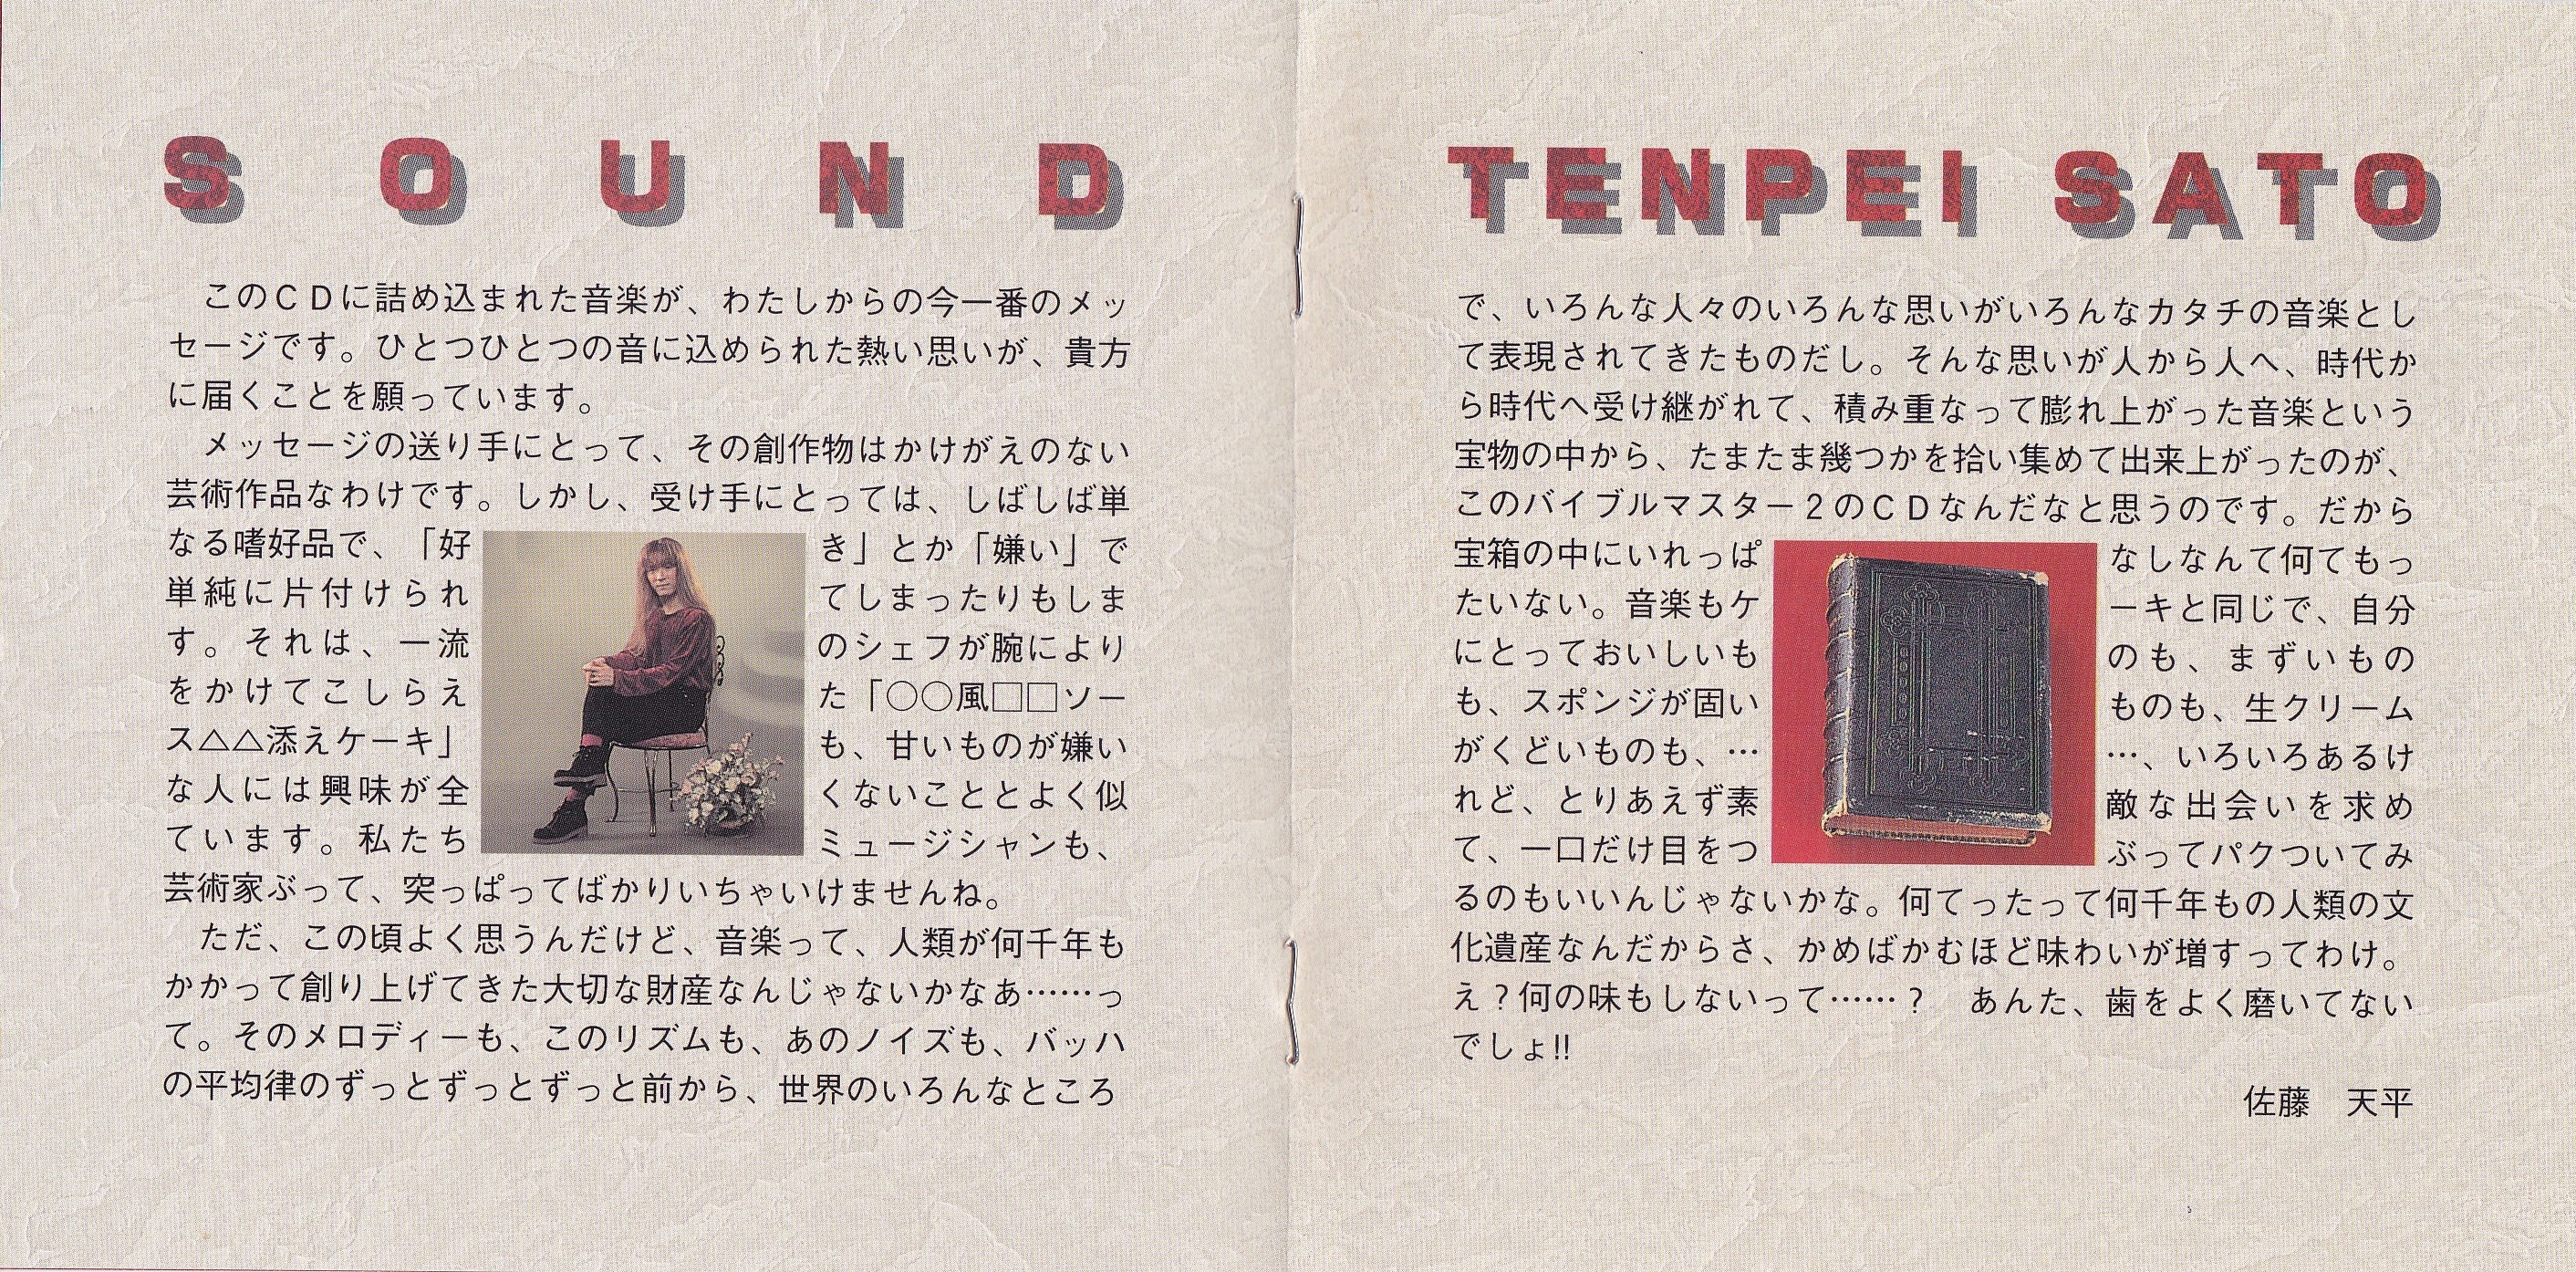 SOUND
このＣＤに詰め込まれた音楽が、わたしからの今一番のメッ
セージです。ひとつひとつの音に込められた熱い思いが、貴方
に届くことを願っています。
メッセージの送り手にとって、その創作物はかけがえのない
芸術作品なわけです。しかし、受け手にとっては、しばしば単
なる嗜好品で、「好き」とか「嫌い」で
単純に片付けられてしまったりもしま
す。それは、一流のシェフが腕により
をかけてこしらえた「○○風□□ソー
ス△△添えケーキ」も、甘いものが嫌い
な人には興味が全くないこととよく似
ています。私たちミュージシャンも、
芸術家ぶって、突っぱってばかりいちゃいけませんね。
ただ、この頃よく思うんだけど、音楽って、人類が何千年も
かかって創り上げてきた大切な財産なんじゃないかなあ……っ
て。そのメロディーも、このリズムも、あのノイズも、バッハ
の平均律のずっとずっとずっと前から、世界のいろんなところ
TENPEI SATO
で、いろんな人々のいろんな思いがいろんなカタチの音楽とし
て表現されてきたものだし。そんな思いが人から人へ、時代か
ら時代へ受け継がれて、積み重なって膨れ上がった音楽という
宝物の中から、たまたま幾つかを拾い集めて出来上がったのが、
このバイブルマスター２のＣＤなんだなと思うのです。だから
宝箱の中にいれっぱなしなんて何てもっ
たいない。音楽もケーキと同じで、自分
にとっておいしいものも、まずいもの
も、スポンジが固いものも、生クリーム
がくどいものも、……、いろいろあるけ
れど、とりあえず素敵な出会いを求め
て、一口だけ目をつぶってパクついてみ
るのもいいんじゃないかな。何てったって何千年もの人類の文
化遺産なんだからさ、かめばかむほど味わいが増すってわけ。
え？何の味もしないって……？　あんた、歯をよく磨いてない
でしょ!!
佐藤　天平